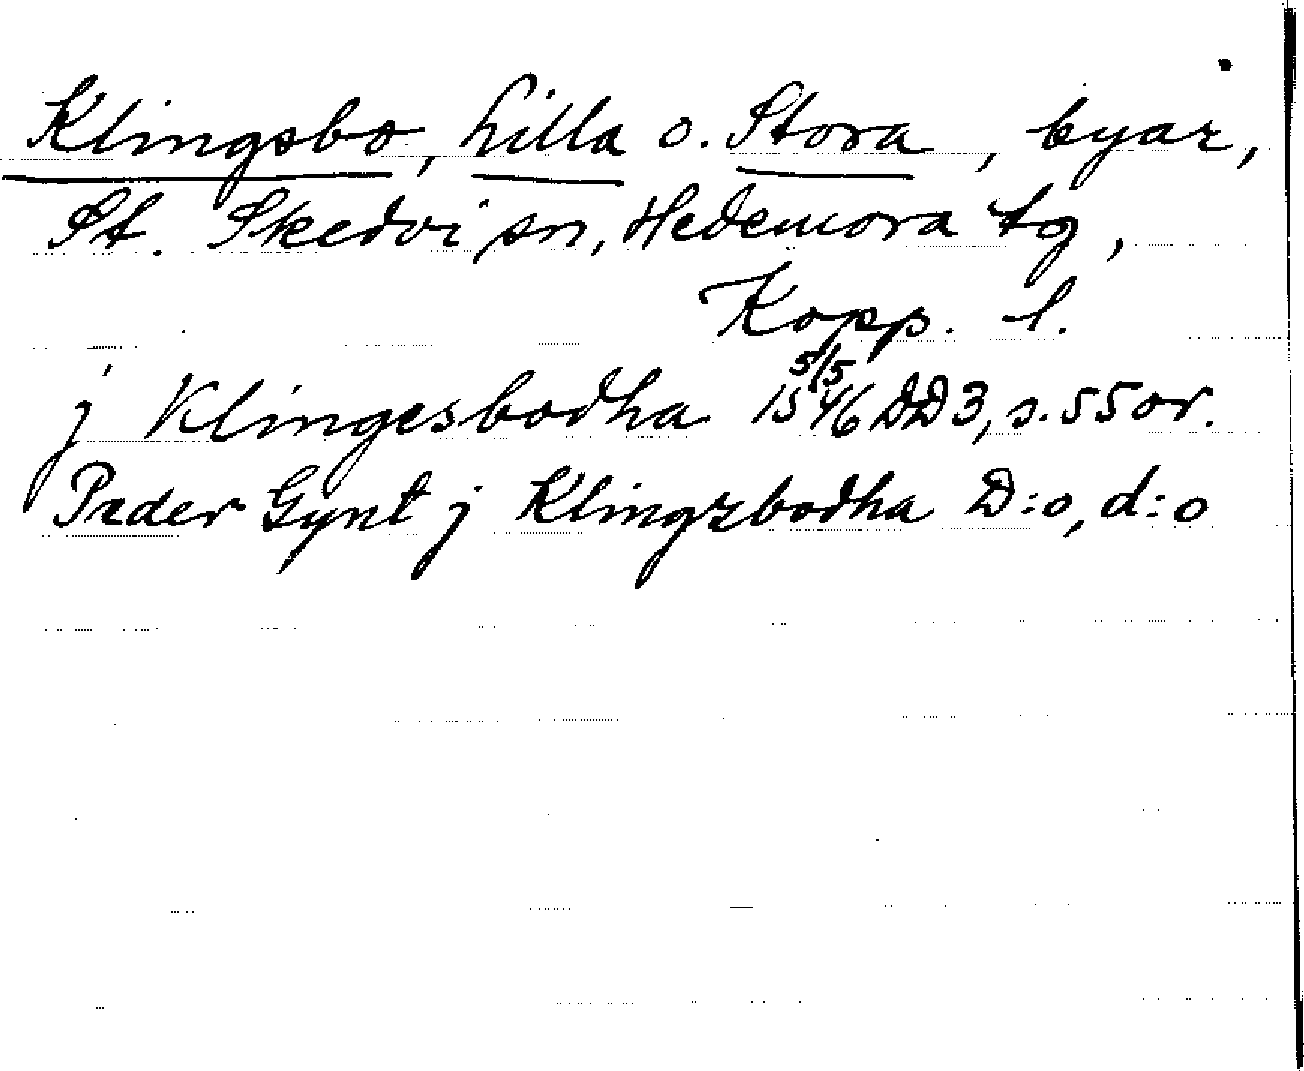 Klingsbo, Lilla o. Stora, byar,
St. Skedvi sn, Hedemora tg,
Kopp. l.
j Klingesbodha 5/5 1546 DD3, s. 55 or.
Peder Gynt j Klingzbodha D:o, d:o